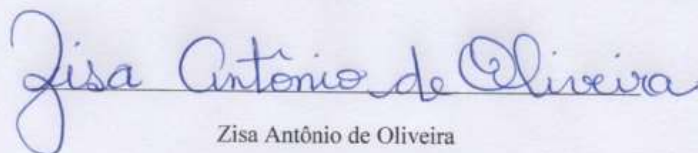 Zisa Antônio de Oliveira
Zisa Antônio de Oliveira